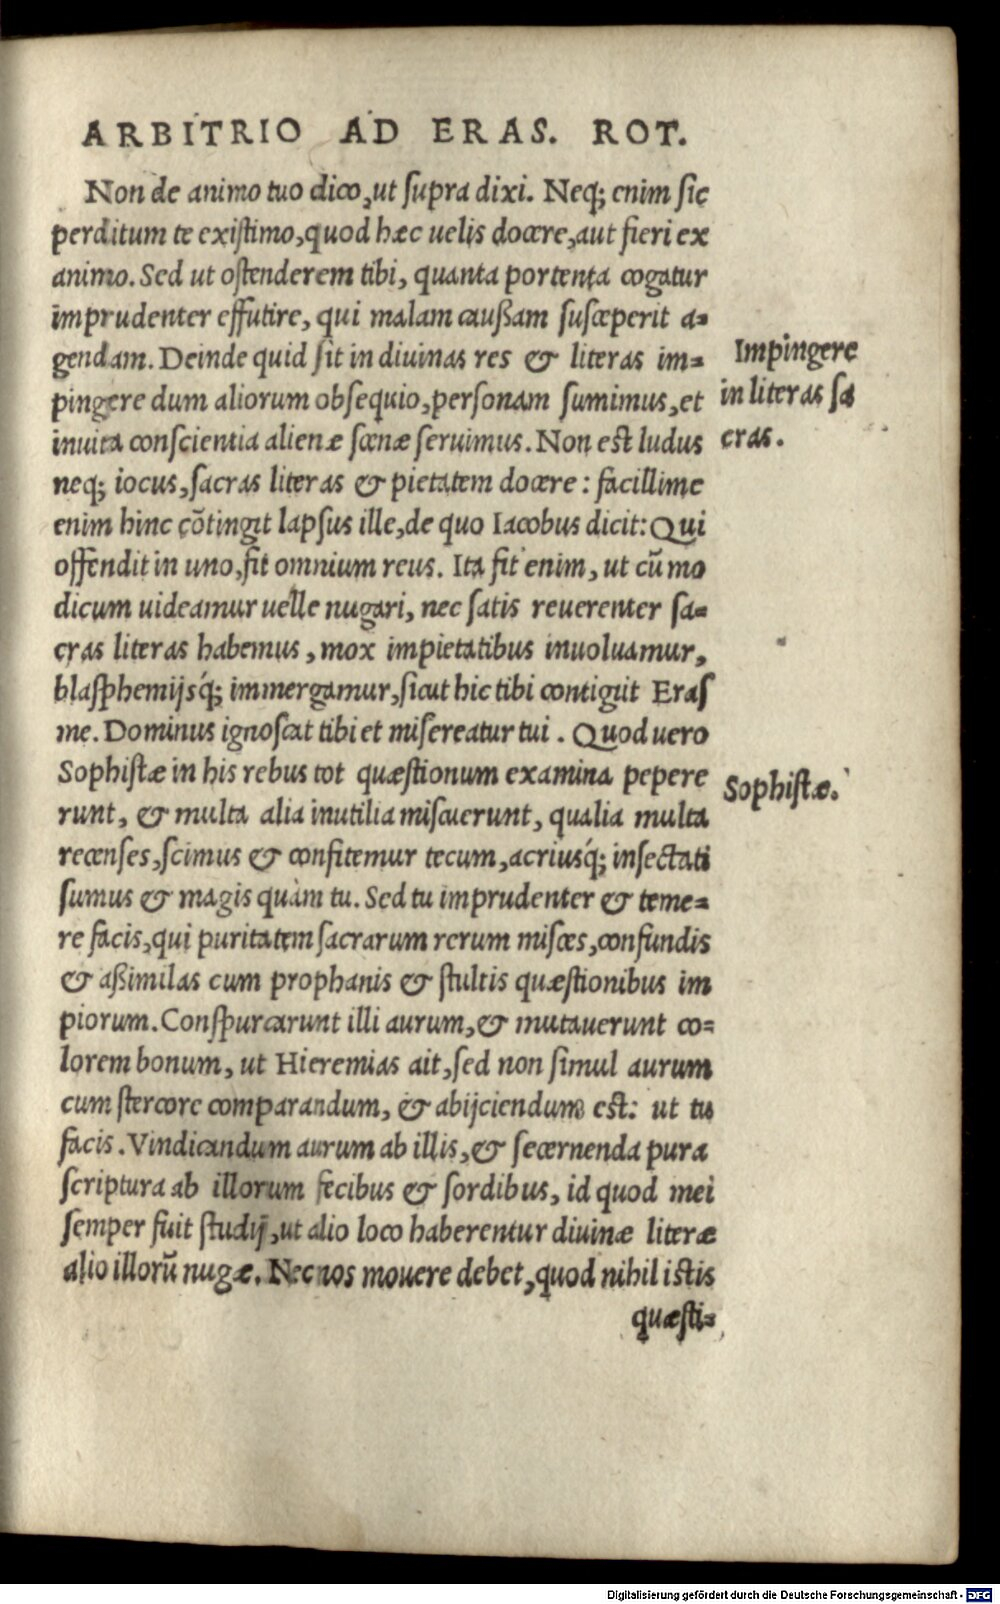 ARBITRIO AD ERAS. ROT.
Non de animo tuo dico, ut ſupra dixi. Neq; enim ſic
perditum te exiſtimo, quod hæc uelis docere, aut fieri ex
animo. Sed ut oſtenderem tibi, quanta portenta cogatur
imprudenter effutire, qui malam cauſſam ſuſceperit a=
gendam. Deinde quid ſit in diuinas res & literas im=
pingere dum aliorum obſequio, perſonam ſumimus, et
inuita conſcientia alienæ ſcenæ ſeruimus. Non eſt ludus
neq; iocus, ſacras literas & pietatem docere: facillime
enim hinc cōtingit lapſus ille, de quo Iacobus dicit: Qui
offendit in uno, fit omnium reus. Ita fit enim, ut cū mo
dicum uideamur uelle nugari, nec ſatis reuerenter ſa=
cras literas habemus, mox impietatibus inuoluamur,
blaſphemijsq́; immergamur, ſicut hic tibi contigiit Eraſ
me. Dominus ignoſcat tibi et miſereatur tui. Quod uero
Sophiſtæ in his rebus tot quæſtionum examina pepere
runt, & multa alia inutilia miſcuerunt, qualia multa
recenſes, ſcimus & confitemur tecum, acriusq́; inſectati
ſumus & magis quàm tu. Sed tu imprudenter & teme=
re facis, qui puritatem ſacrarum rerum miſces, confundis
& aſſimilas cum prophanis & ſtultis quæſtionibus im
piorum. Conſpurcarunt illi aurum, & mutauerunt co=
lorem bonum, ut Hieremias ait, ſed non ſimul aurum
cum ſtercore comparandum, & abijciendum eſt: ut tu
facis. Vindicandum aurum ab illis, & ſecernenda pura
ſcriptura ab illorum fecibus & ſordibus, id quod mei
ſemper fuit ſtudij, ut alio loco haberentur diuinæ literæ
alio illorū nugæ. Nec nos mouere debet, quod nihil iſtis
quæſti=
Impingere
in literas ſa
cras.
Sophiſtæ.
Digitalisierung gefördert durch die Deutsche Forschungsgemeinschaft - DFG